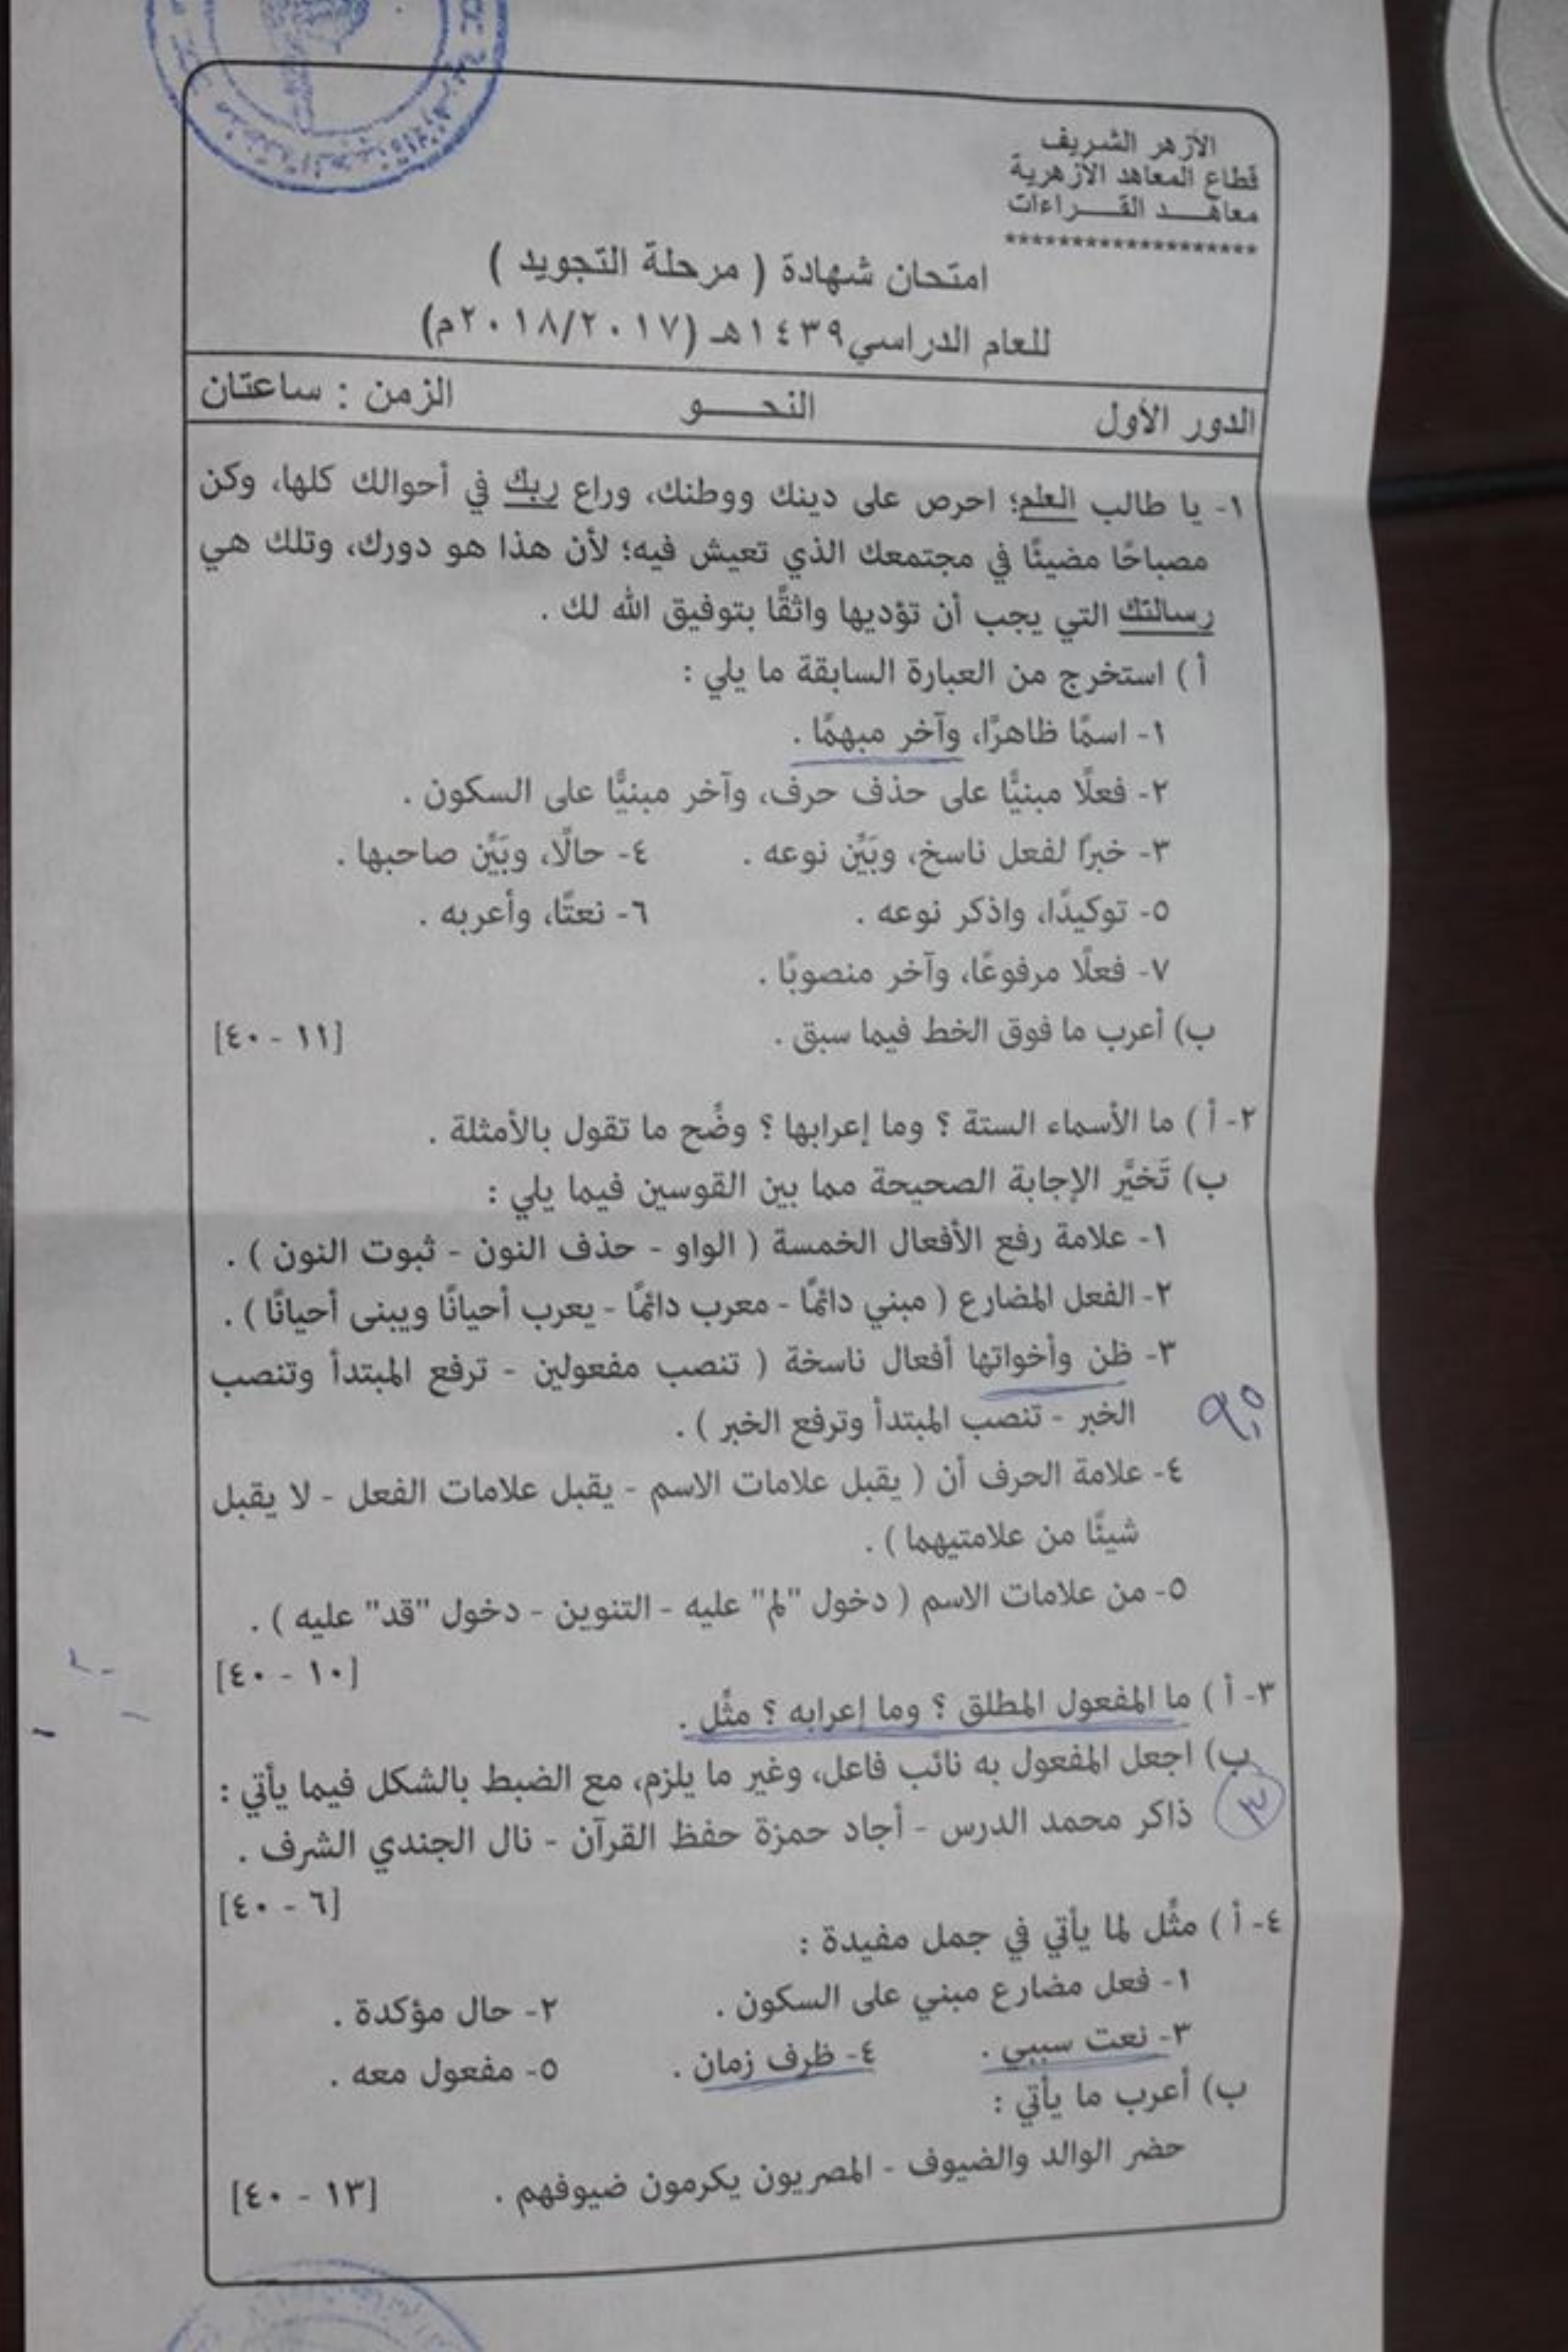 الأزهر الشريف
قطاع المعاهد الأزهرية
معاهــد القــراءات
*******************
امتحان شهادة ( مرحلة التجويد )
للعام الدراسي١٤٣٩هـ (٢٠١٨/٢٠١٧م)
الدور الأول النحـــو الزمن : ساعتان
١- يا طالب العلم؛ احرص على دينك ووطنك، وراع ربك في أحوالك كلها، وكن
مصباحًا مضيئًا في مجتمعك الذي تعيش فيه؛ لأن هذا هو دورك، وتلك هي
رسالتك التي يجب أن تؤديها واثقًا بتوفيق الله لك .
أ ) استخرج من العبارة السابقة ما يلي :
١- اسمًا ظاهرًا، وآخر مبهمًا .
٢- فعلًا مبنيًّا على حذف حرف، وآخر مبنيًّا على السكون .
٣- خبرًا لفعل ناسخ، وبَيِّن نوعه . ٤- حالًا، وبَيِّن صاحبها .
٥- توكيدًا، واذكر نوعه . ٦- نعتًا، وأعربه .
٧- فعلًا مرفوعًا، وآخر منصوبًا .
ب) أعرب ما فوق الخط فيما سبق . [١١ - ٤٠]
٢- أ ) ما الأسماء الستة ؟ وما إعرابها ؟ وضِّح ما تقول بالأمثلة .
ب) تَخيَّر الإجابة الصحيحة مما بين القوسين فيما يلي :
١- علامة رفع الأفعال الخمسة ( الواو - حذف النون - ثبوت النون ) .
٢- الفعل المضارع ( مبني دائمًا - معرب دائمًا - يعرب أحيانًا ويبنى أحيانًا ) .
٣- ظن وأخواتها أفعال ناسخة ( تنصب مفعولين - ترفع المبتدأ وتنصب
الخبر - تنصب المبتدأ وترفع الخبر ) .
٤- علامة الحرف أن ( يقبل علامات الاسم - يقبل علامات الفعل - لا يقبل
شيئًا من علامتيهما ) .
٥- من علامات الاسم ( دخول "لم" عليه - التنوين - دخول "قد" عليه ) .
[١٠ - ٤٠]
٣- أ ) ما المفعول المطلق ؟ وما إعرابه ؟ مثِّل .
ب) اجعل المفعول به نائب فاعل، وغير ما يلزم، مع الضبط بالشكل فيما يأتي :
ذاكر محمد الدرس - أجاد حمزة حفظ القرآن - نال الجندي الشرف .
[٦ - ٤٠]
٤- أ ) مثِّل لما يأتي في جمل مفيدة :
١- فعل مضارع مبني على السكون . ٢- حال مؤكدة .
٣- نعت سببي . ٤- ظرف زمان . ٥- مفعول معه .
ب) أعرب ما يأتي :
حضر الوالد والضيوف - المصريون يكرمون ضيوفهم . [١٣ - ٤٠]